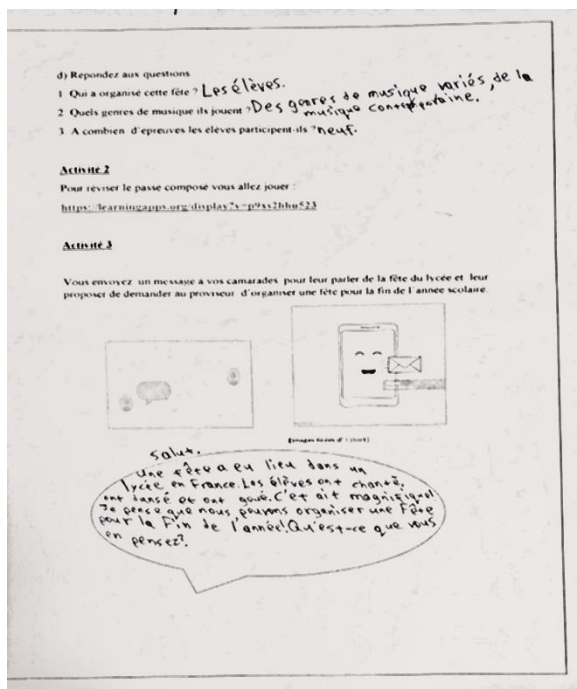 d) Repondez aux questions
1 Qui a organisé cette fête ? Les élèves.
2 Quels genres de musique ils jouent ? Des genres de musique variés, de la
musique contemporaine.
3 A combien d'épreuves les élèves participent-ils ? neuf.
Activité 2
Pour réviser le passe composé vous allez jouer :
https://learningapps.org/display?v=p9xs2hhu523
Activité 3
Vous envoyez un message à vos camarades pour leur parler de la fête du lycée et leur
proposer de demander au proviseur d'organiser une fête pour la fin de l'année scolaire.
salut.
Une fête a eu lieu dans un
lycée en France. Les élèves ont chanté,
ont dansé et ont goué. C'et ait magnifique!
Je pense que nous pouvons organiser une Fête
pour la Fin de l'année! Qu'est-ce que vous
en pensez?